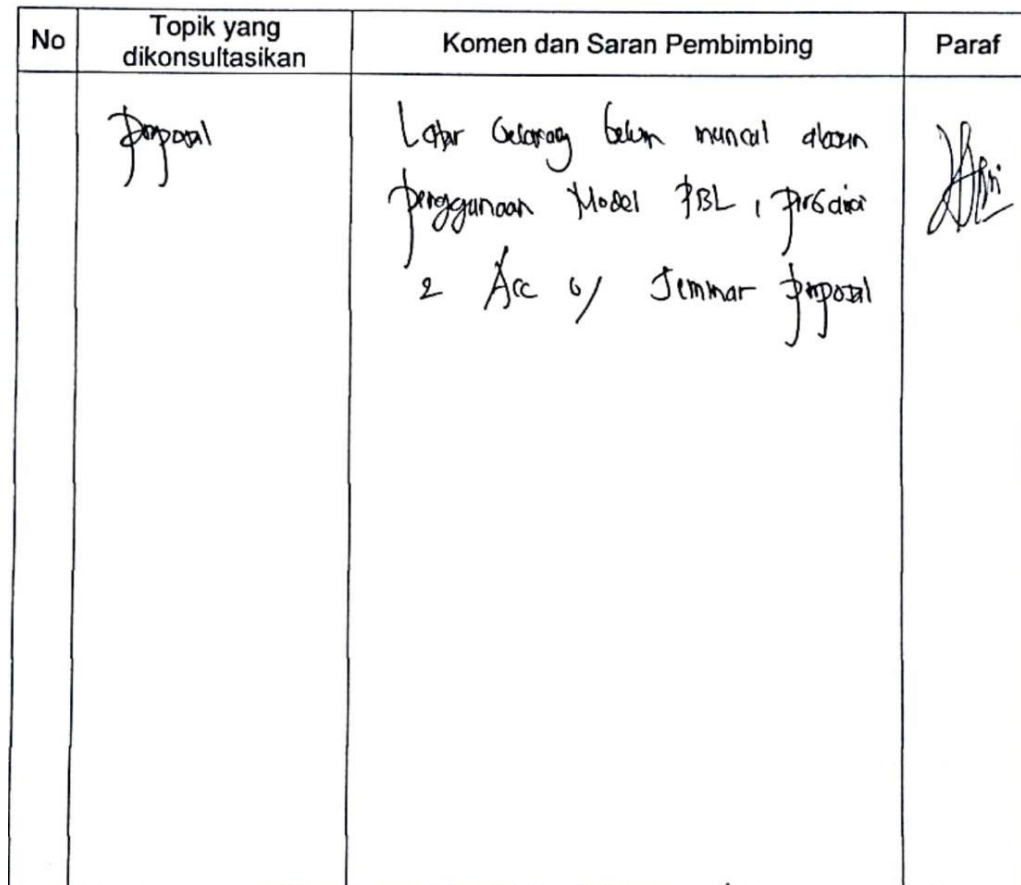 No
Topik yang
dikonsultasikan
Komen dan Saran Pembimbing
Paraf
Proposal
Latar belakang belum muncul alasan
penggunaan Model PBL,
2 Acc u/ Seminar proposal